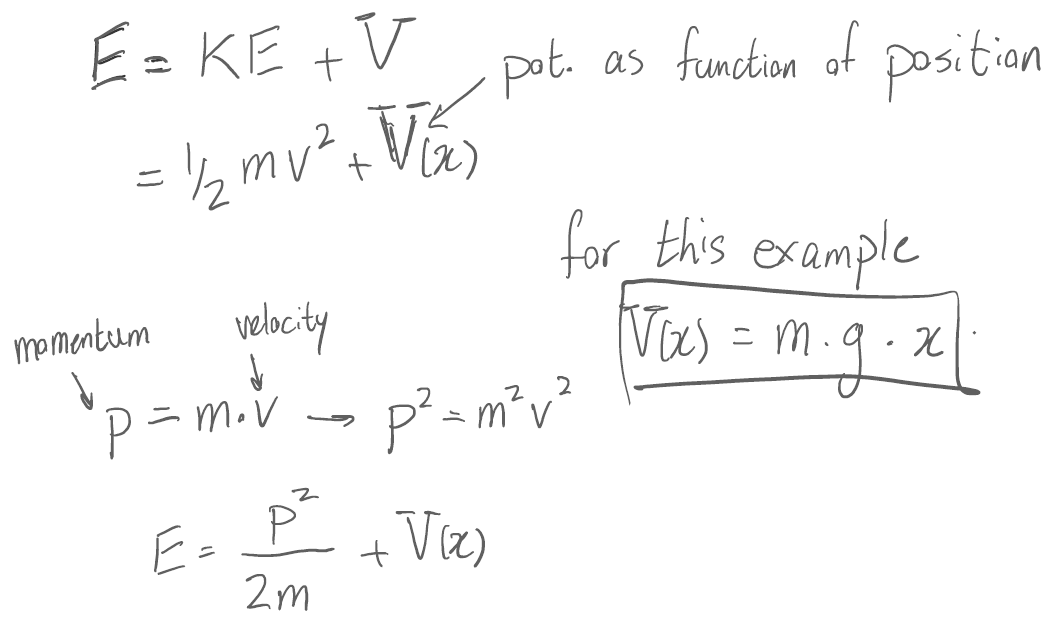 E = KE + V
pot. as function of position
= 1/2 mv² + V(x)
for this example
V(x) = m . g . x .
momentum
velocity
p = m.v → p² = m²v²
E = p²/2m + V(x)